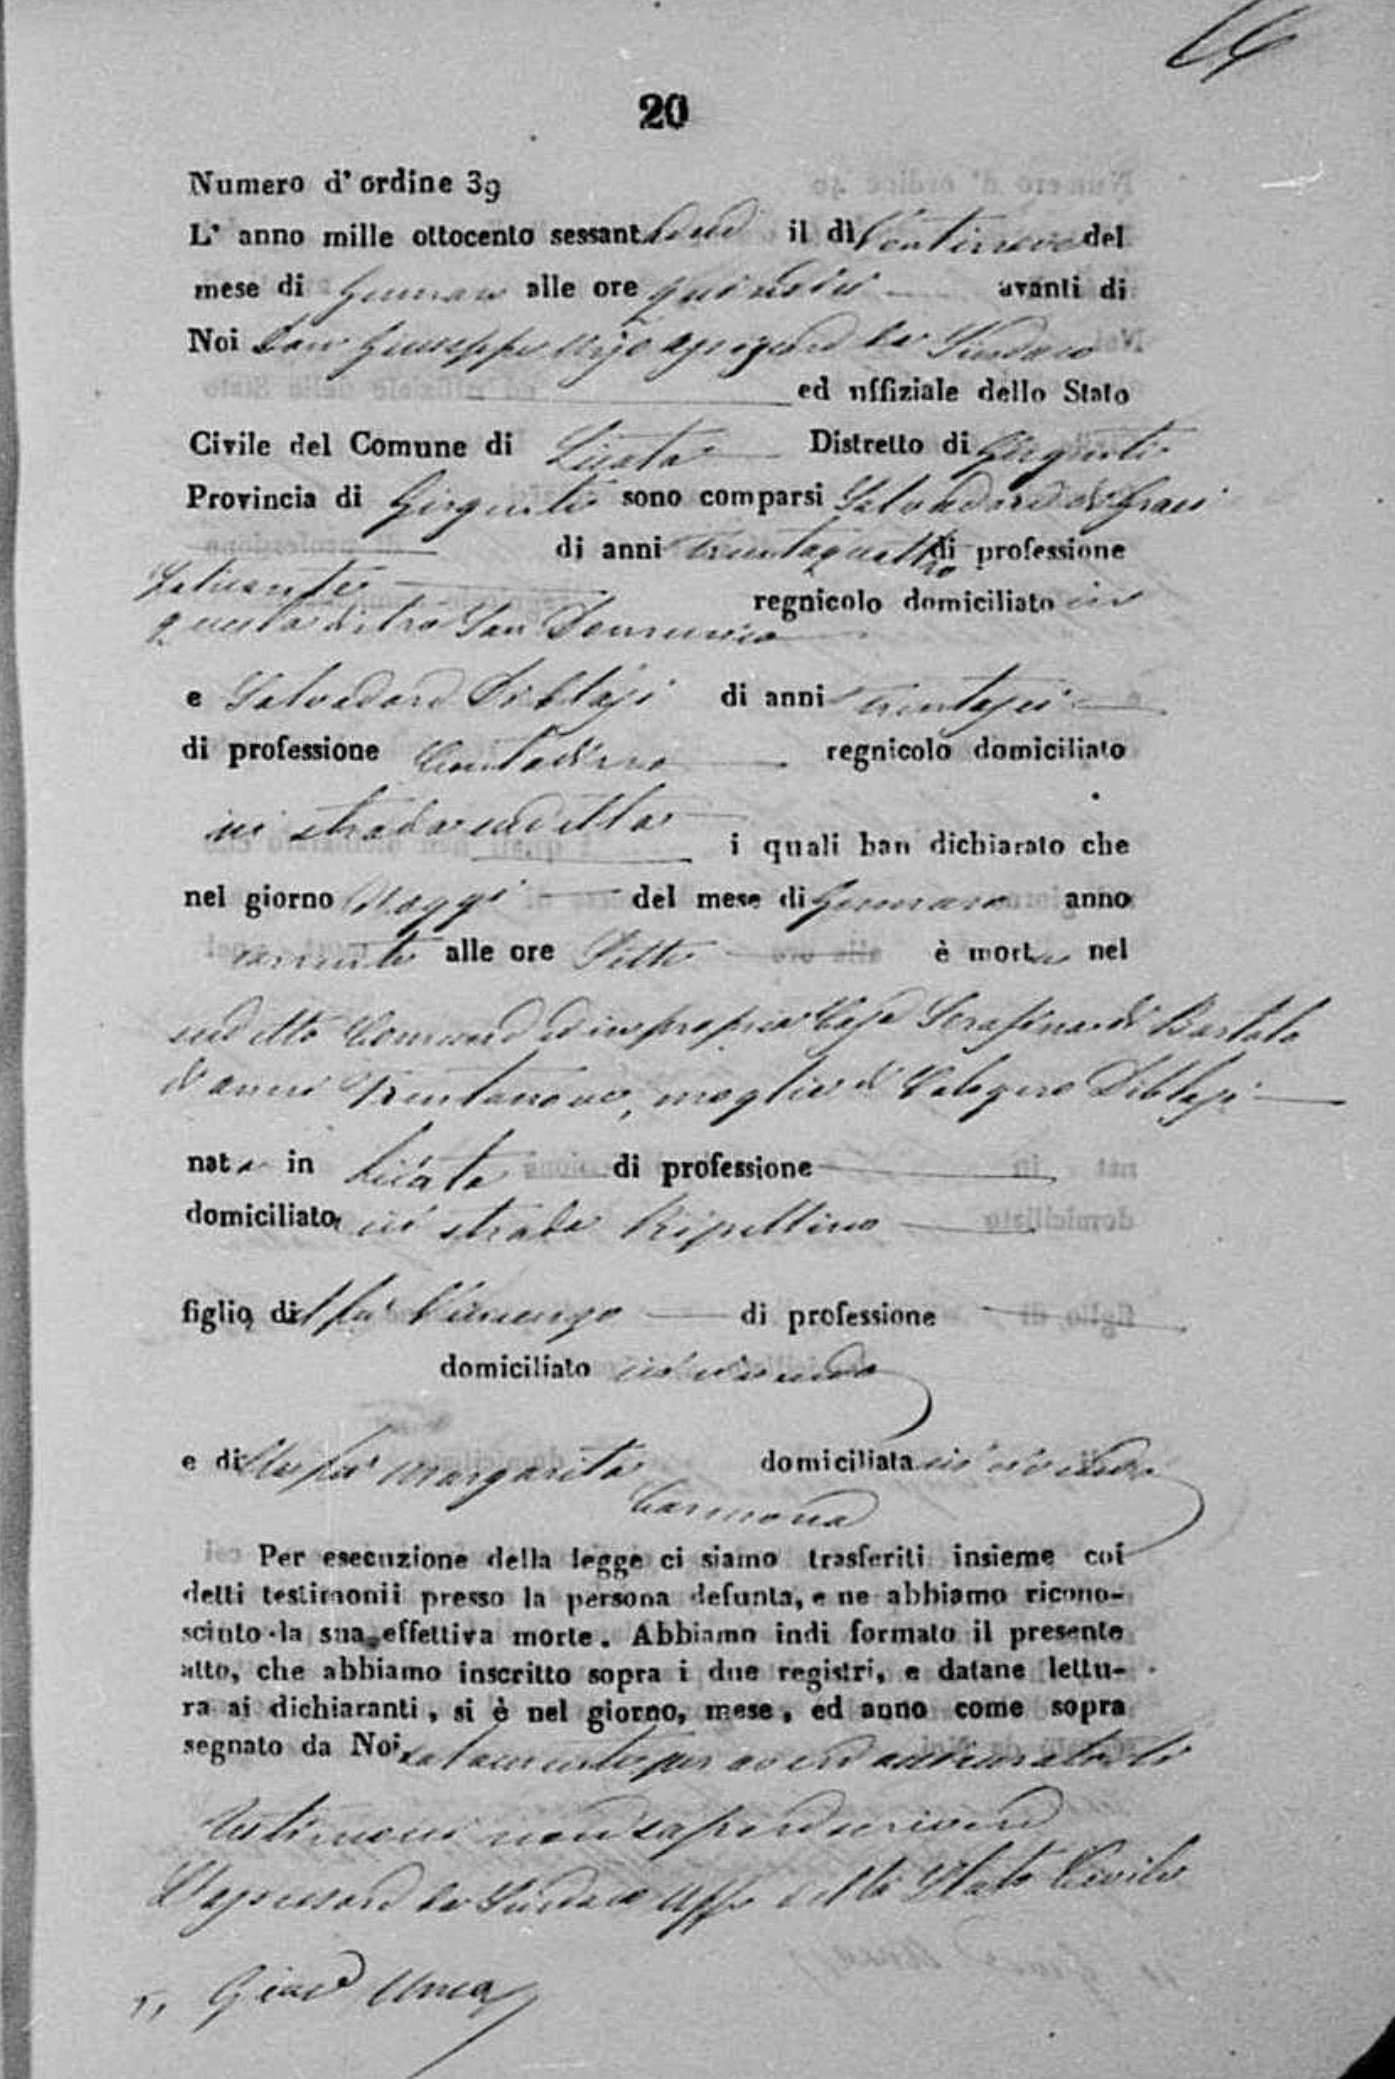 20
Numero d' ordine 39
L' anno mille ottocento sessantadue il dì Ventinove del
mese di Gennaro alle ore quindici avanti di
Noi Don Giuseppe Assessore da Sindaco
ed uffiziale dello Stato
Civile del Comune di Licata Distretto di Girgenti
Provincia di Girgenti sono comparsi Salvadore
di anni trentaquattro di professione
regnicolo domiciliato in
questa strada San Domenico
e Salvadore Diblasi di anni trentasei
di professione Contadino regnicolo domiciliato
in strada suddetta
i quali han dichiarato che
nel giorno d'oggi del mese di Gennaro anno
corrente alle ore Sette è morta nel
suddetto Comune ed in propria Casa Serafina di Bartolo
d'anni Trentanove, moglie di Calogero Diblasi
nata in Licata di professione
domiciliata in strada Ripellino
figlia di fu Vincenzo di professione
domiciliato in vivendo
e della fu Margarita domiciliata in vivendo
Carmona
Per esecuzione della legge ci siamo trasferiti insieme coi
detti testimonii presso la persona defunta, e ne abbiamo ricono-
sciuto la sua effettiva morte. Abbiamo indi formato il presente
atto, che abbiamo inscritto sopra i due registri, e datane lettu-
ra ai dichiaranti, si è nel giorno, mese, ed anno come sopra
segnato da Noi solamente per avere asserito li
testimoni non sapere scrivere
L'assessore da Sindaco Uff. dello Stato Civile